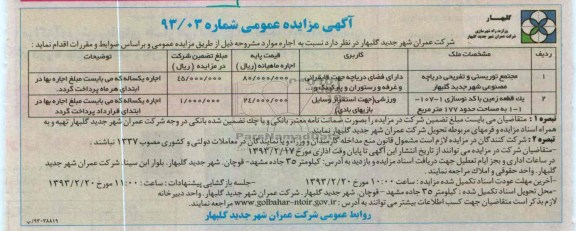 گلبهار
وزارت راه و شهرسازی
شرکت عمران شهر جدید گلبهار
آگهی مزایده عمومی شماره ۹۳/۰۳
شرکت عمران شهر جدید گلبهار در نظر دارد نسبت به اجاره موارد مشروحه ذیل از طریق مزایده عمومی و براساس ضوابط و مقررات اقدام نماید:
ردیف مشخصات ملک کاربری قیمت پایه اجاره ماهیانه (ریال) مبلغ تضمین شرکت در مزایده (ریال) توضیحات
۱ مجتمع توریستی و تفریحی دریاچه مصنوعی شهر جدید گلبهار دارای فضای دریاچه جهت قایقرانی و غرفه و رستوران و پارکینگ ۸۰/۰۰۰/۰۰۰ ۴۵/۰۰۰/۰۰۰ اجاره یکساله که می بایست مبلغ اجاره بها در ابتدای هر ماه پرداخت گردد.
۲ یک قطعه زمین با کد نوسازی ۱-۱۰۷-۱-۱ به مساحت حدود ۱۷۷ مترمربع ورزشی (جهت استقرار وسایل بازیهای بادی) ۲۴/۰۰۰/۰۰۰ ۱/۰۰۰/۰۰۰ اجاره یکساله که می بایست مبلغ اجاره بها در ابتدای قرارداد پرداخت گردد.
تبصره ۱: متقاضیان می بایست مبلغ تضمین شرکت در مزایده را بصورت ضمانت نامه معتبر بانکی و یا چک تضمین شده بانکی در وجه شرکت عمران شهر جدید گلبهار تهیه و به همراه اسناد مزایده و فرمهای مربوطه تحویل شرکت عمران شهر جدید گلبهار نمایند.
تبصره ۲: شرکت کنندگان در مزایده لازم است مشمول قانون منع مداخله کارمندان و وزراء و یا نمایندگان در معاملات دولتی و کشوری مصوب ۱۳۳۷ نباشند.
-متقاضیان شرکت در مزایده می توانند از تاریخ انتشار این آگهی تا پایان وقت اداری مورخ ۱۳۹۳/۲/۱۷ در ساعات اداری و بجز ایام تعطیل جهت دریافت اسناد مزایده و بازدید به آدرس: کیلومتر ۳۵ جاده مشهد - قوچان، شهر جدید گلبهار، بلوار ابن سینا، شرکت عمران شهر جدید گلبهار، واحد حقوقی و املاک مراجعه نمایند.
-آخرین مهلت عودت اسناد تکمیل شده مزایده: ساعت ۱۰:۰۰ مورخ ۱۳۹۳/۲/۲۰ -جلسه بازگشایی پیشنهادات: ساعت ۱۱:۰۰ مورخ ۱۳۹۳/۲/۲۰
-محل تحویل اسناد تکمیل شده: کیلومتر ۳۵ جاده مشهد - قوچان، شهر جدید گلبهار، شرکت عمران شهر جدید گلبهار، واحد دبیرخانه
لازم بذکر است متقاضیان جهت کسب اطلاعات بیشتر می توانند به آدرس: www.golbahar-ntoir.gov.ir مراجعه نمایند.
روابط عمومی شرکت عمران شهر جدید گلبهار